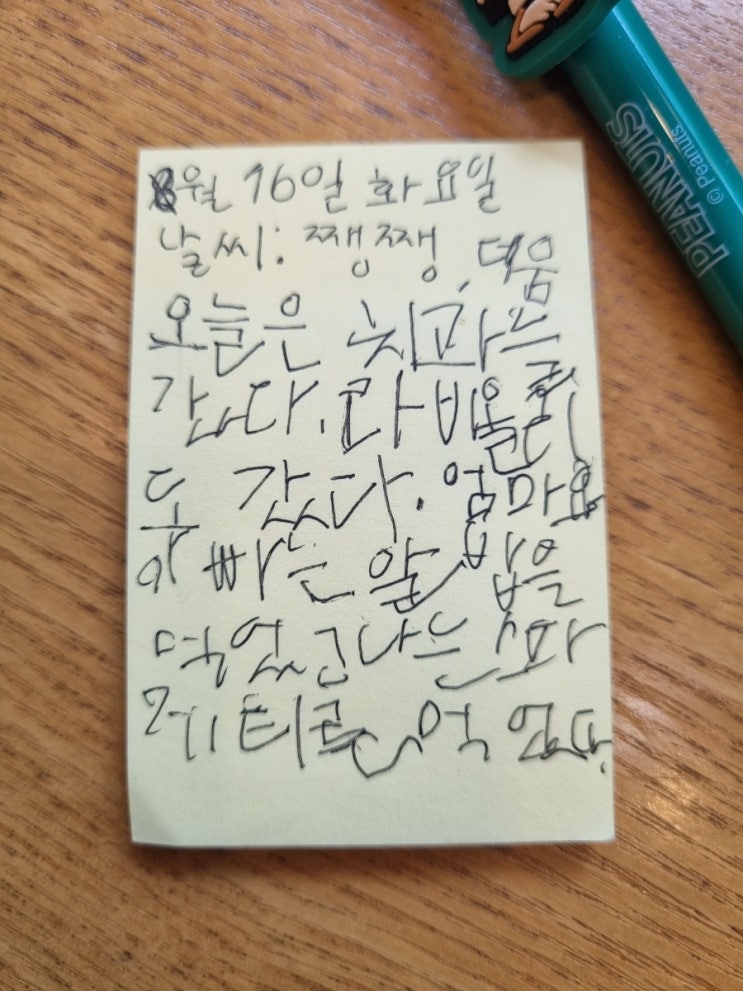 8월 16일 화요일
날씨: 쨍쨍, 더움
오늘은 치과를
갔다. 라배울
도 갔다. 엄마와
아빠는 쌈밥을
먹었고 나는 스파
게티를 먹었다.
PEANUTS
© Peanuts